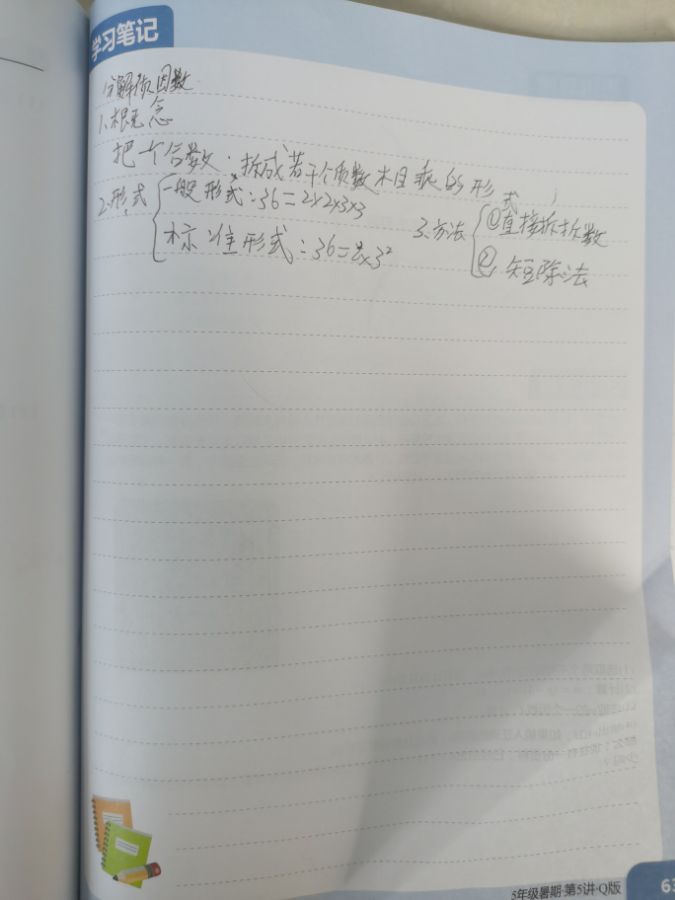 学习笔记
分解质因数
1.概念
把一个合数,拆成若干个质数相乘的形式
2.形式 一般形式:36=2×2×3×3
标准形式:36=2²×3²
3.方法 ①直接拆拆数
②短除法
5年级暑期·第5讲·Q版
63